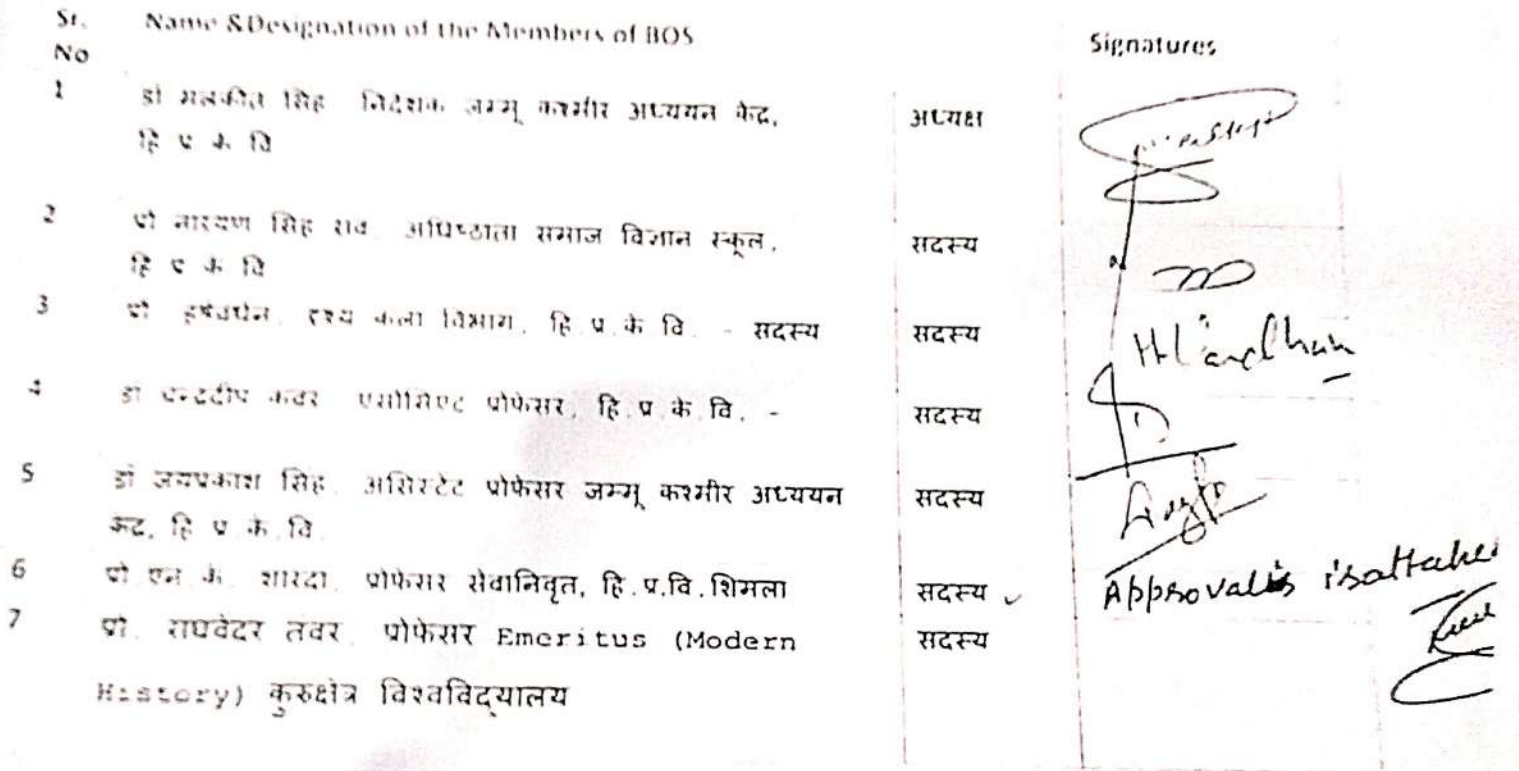 Sr. Name &Designation of the Members of BOS Signatures
No
1 डॉ मलकीत सिंह निदेशक जम्मू कश्मीर अध्ययन केंद्र, अध्यक्ष
हि प्र के वि
2 प्रो नारायण सिंह राव अधिष्ठाता समाज विज्ञान स्कूल, सदस्य
हि प्र के वि
3 प्रो हर्षवर्धन, दृश्य कला विभाग, हि.प्र.के.वि. - सदस्य सदस्य
4 डॉ चन्द्रदीप कवर एसोसिएट प्रोफेसर, हि.प्र.के.वि. - सदस्य
5 डॉ जयप्रकाश सिंह, असिस्टेंट प्रोफेसर जम्मू कश्मीर अध्ययन सदस्य
केंद्र, हि.प्र.के.वि.
6 प्रो एन के. शारदा, प्रोफेसर सेवानिवृत, हि.प्र.वि.शिमला सदस्य Approval is
7 प्रो. राघवेंदर तंवर, प्रोफेसर Emeritus (Modern सदस्य
History) कुरुक्षेत्र विश्वविद्यालय